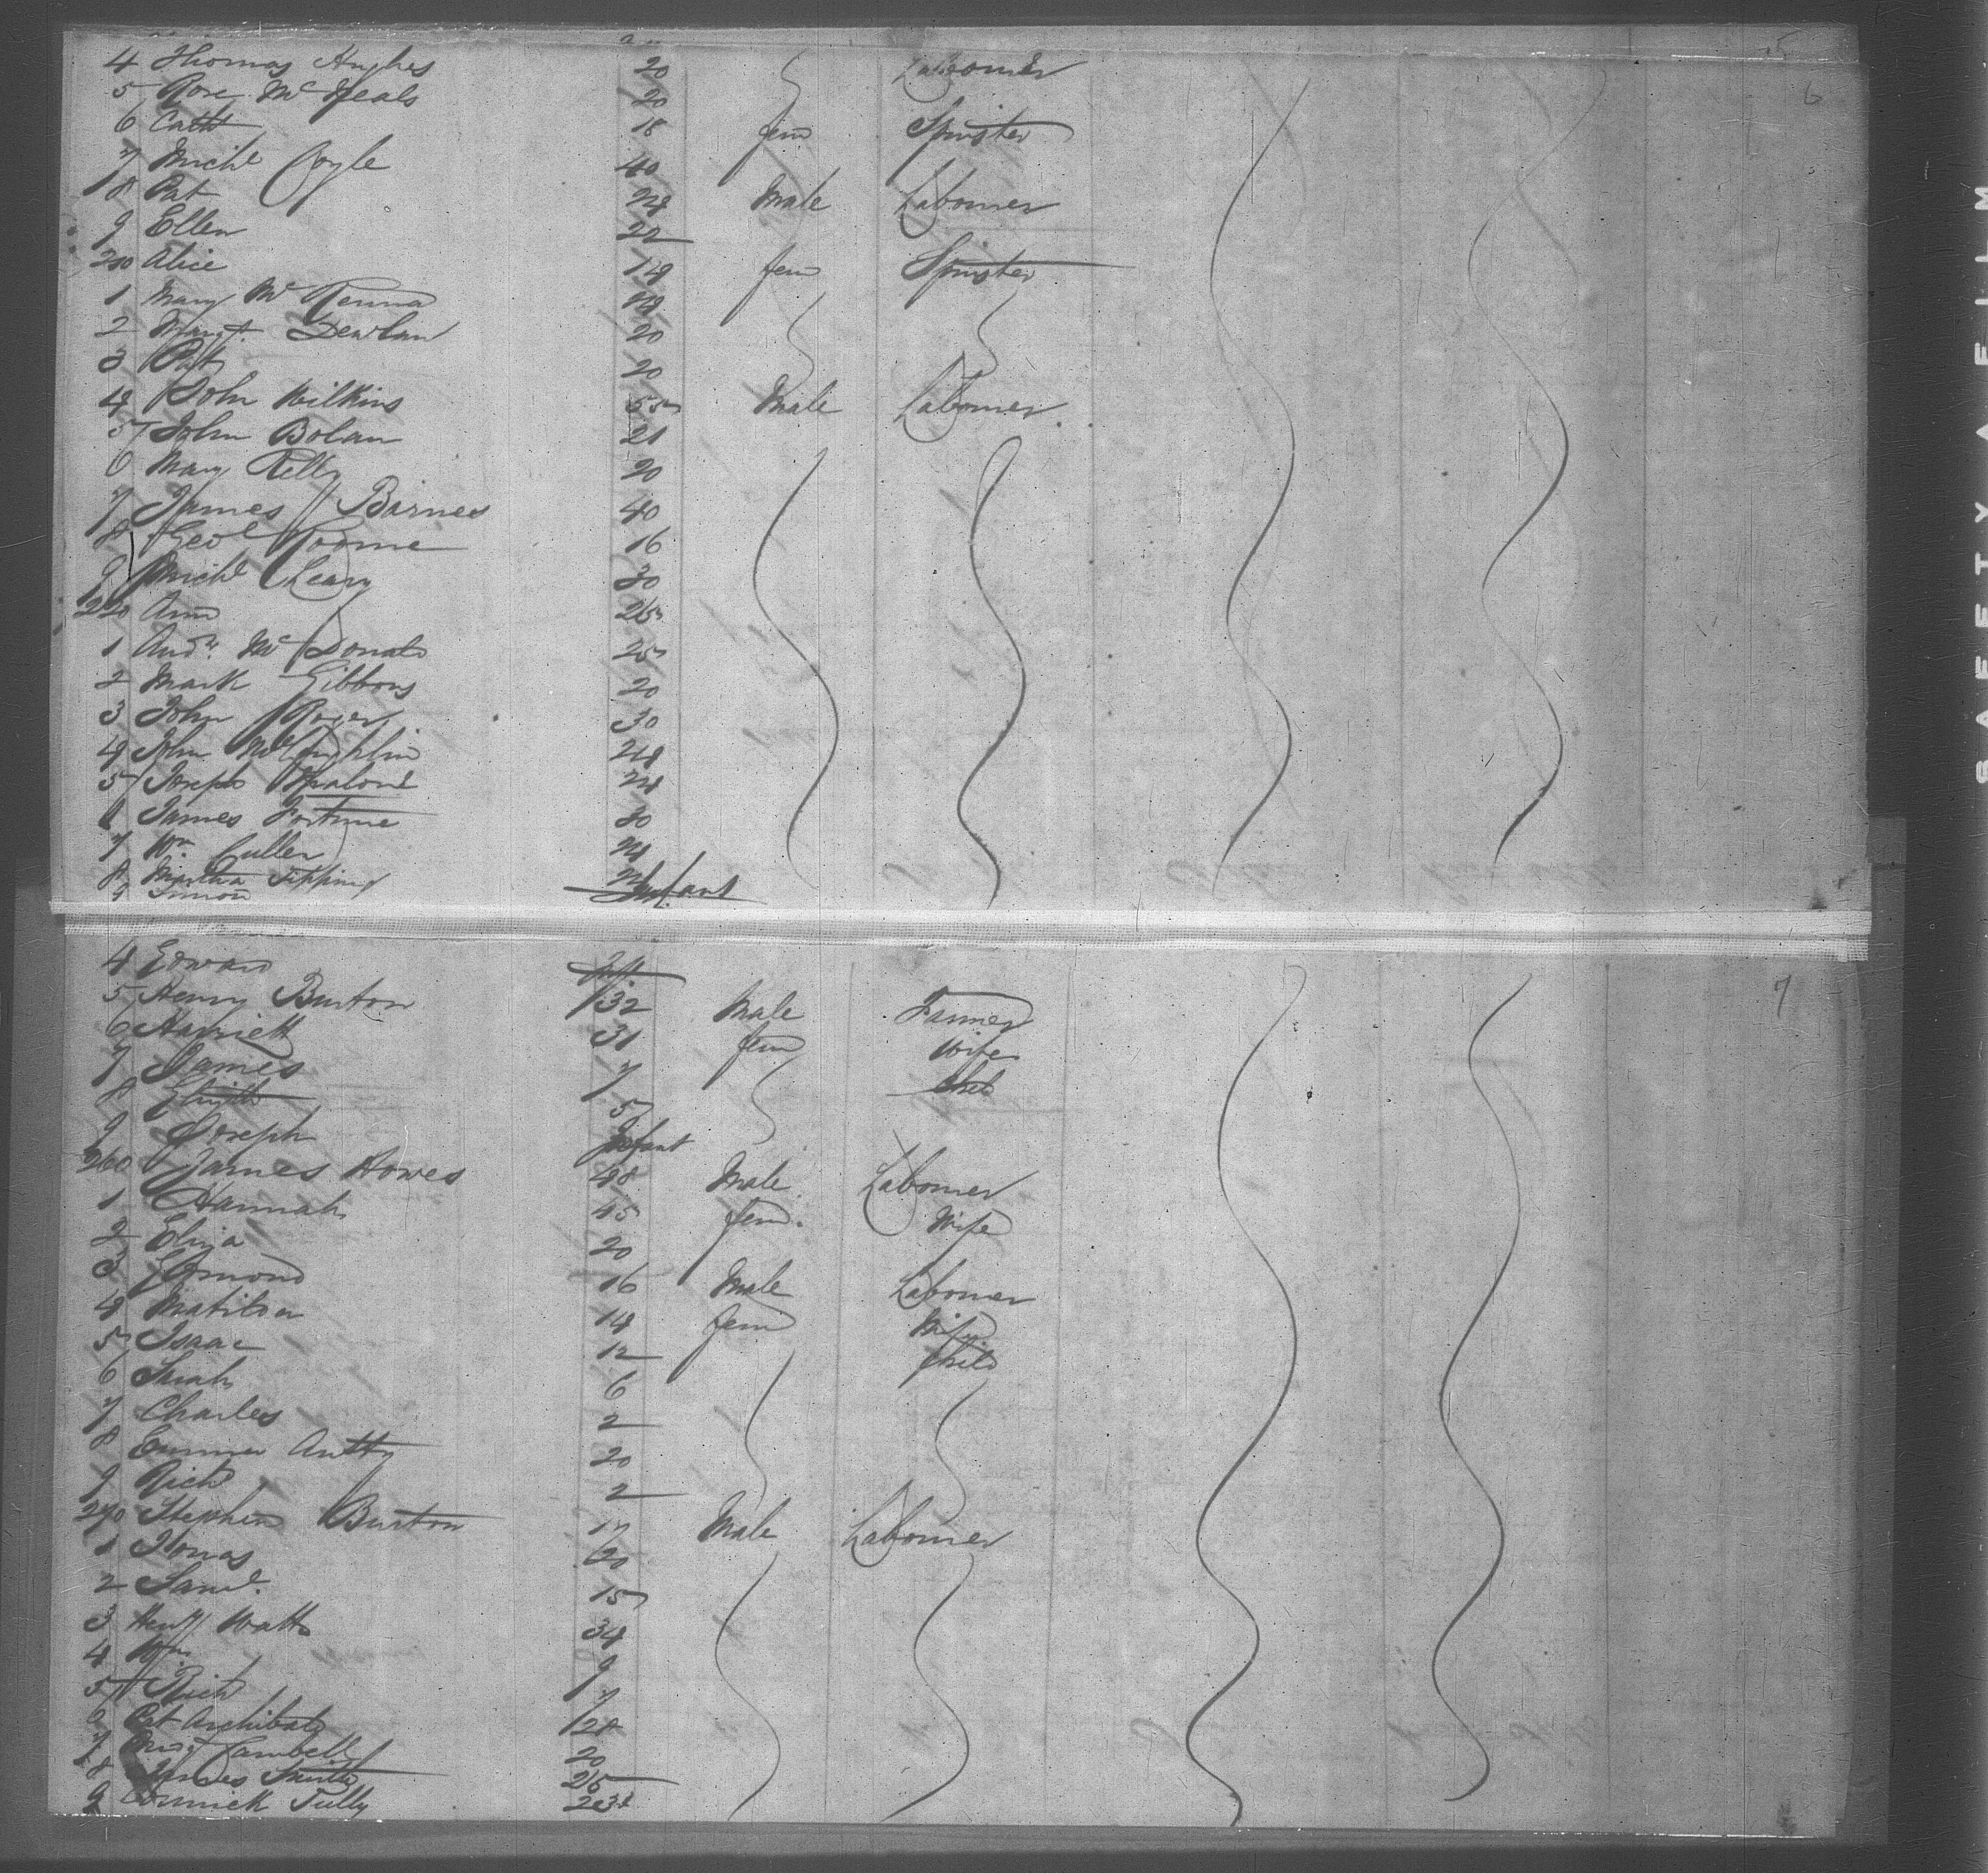 6
4 Thomas Hughes 20 Labourer
5 Rose Mc Neals 20
6 Cath 18 fem Spinster
7 Michl Coyle 40
8 Pat 24 Male Labourer
9 Ellen 22
210 Alice 19 fem Spinster
1 Mary Mc Kenna
2 Margt. 20
3 Pat 20
4 John Wilkins 55 Male Labourer
5 John Bolan 21
6 Mary Kelly 20
7 James Barnes 40
8 Geo 16
9 Michl Leary 30
220 Ann 25
1 Andw. Mc Donald 25
2 Mark Gibbons 20
3 John Roger 30
4 John McLaughlin 24
5 Joseph Malone 24
6 James Fortune 30
7 Wm. Cullen 24
8 Martha Tipping
9 Simon Infant
7
4 Edward Inft
5 Henry Burton 32 Male Farmer
6 Harriett 31 fem Wife
7 James 7 Child
8 Elizth 5
9 Joseph Infant
260 James Howes 48 Male Labourer
1 Hannah 45 fem. Wife
2 Eliza 20
3 Edmond 16 Male Labourer
4 Matilda 14 fem
5 Isaac 12 Child
6 Sarah 6
7 Charles 2
8 Emma 20
9 Richd 2
270 Stephen Burton 17 Male Labourer
1 Thomas 20
2 Saml. 15
3 Heny Watts 34
4 Wm. 9
5 Richd 7
6 Pat Archibald 28
7 Cambell 20
8 James Smith 25
9 Cormick Tully 23
SAFETY FILM